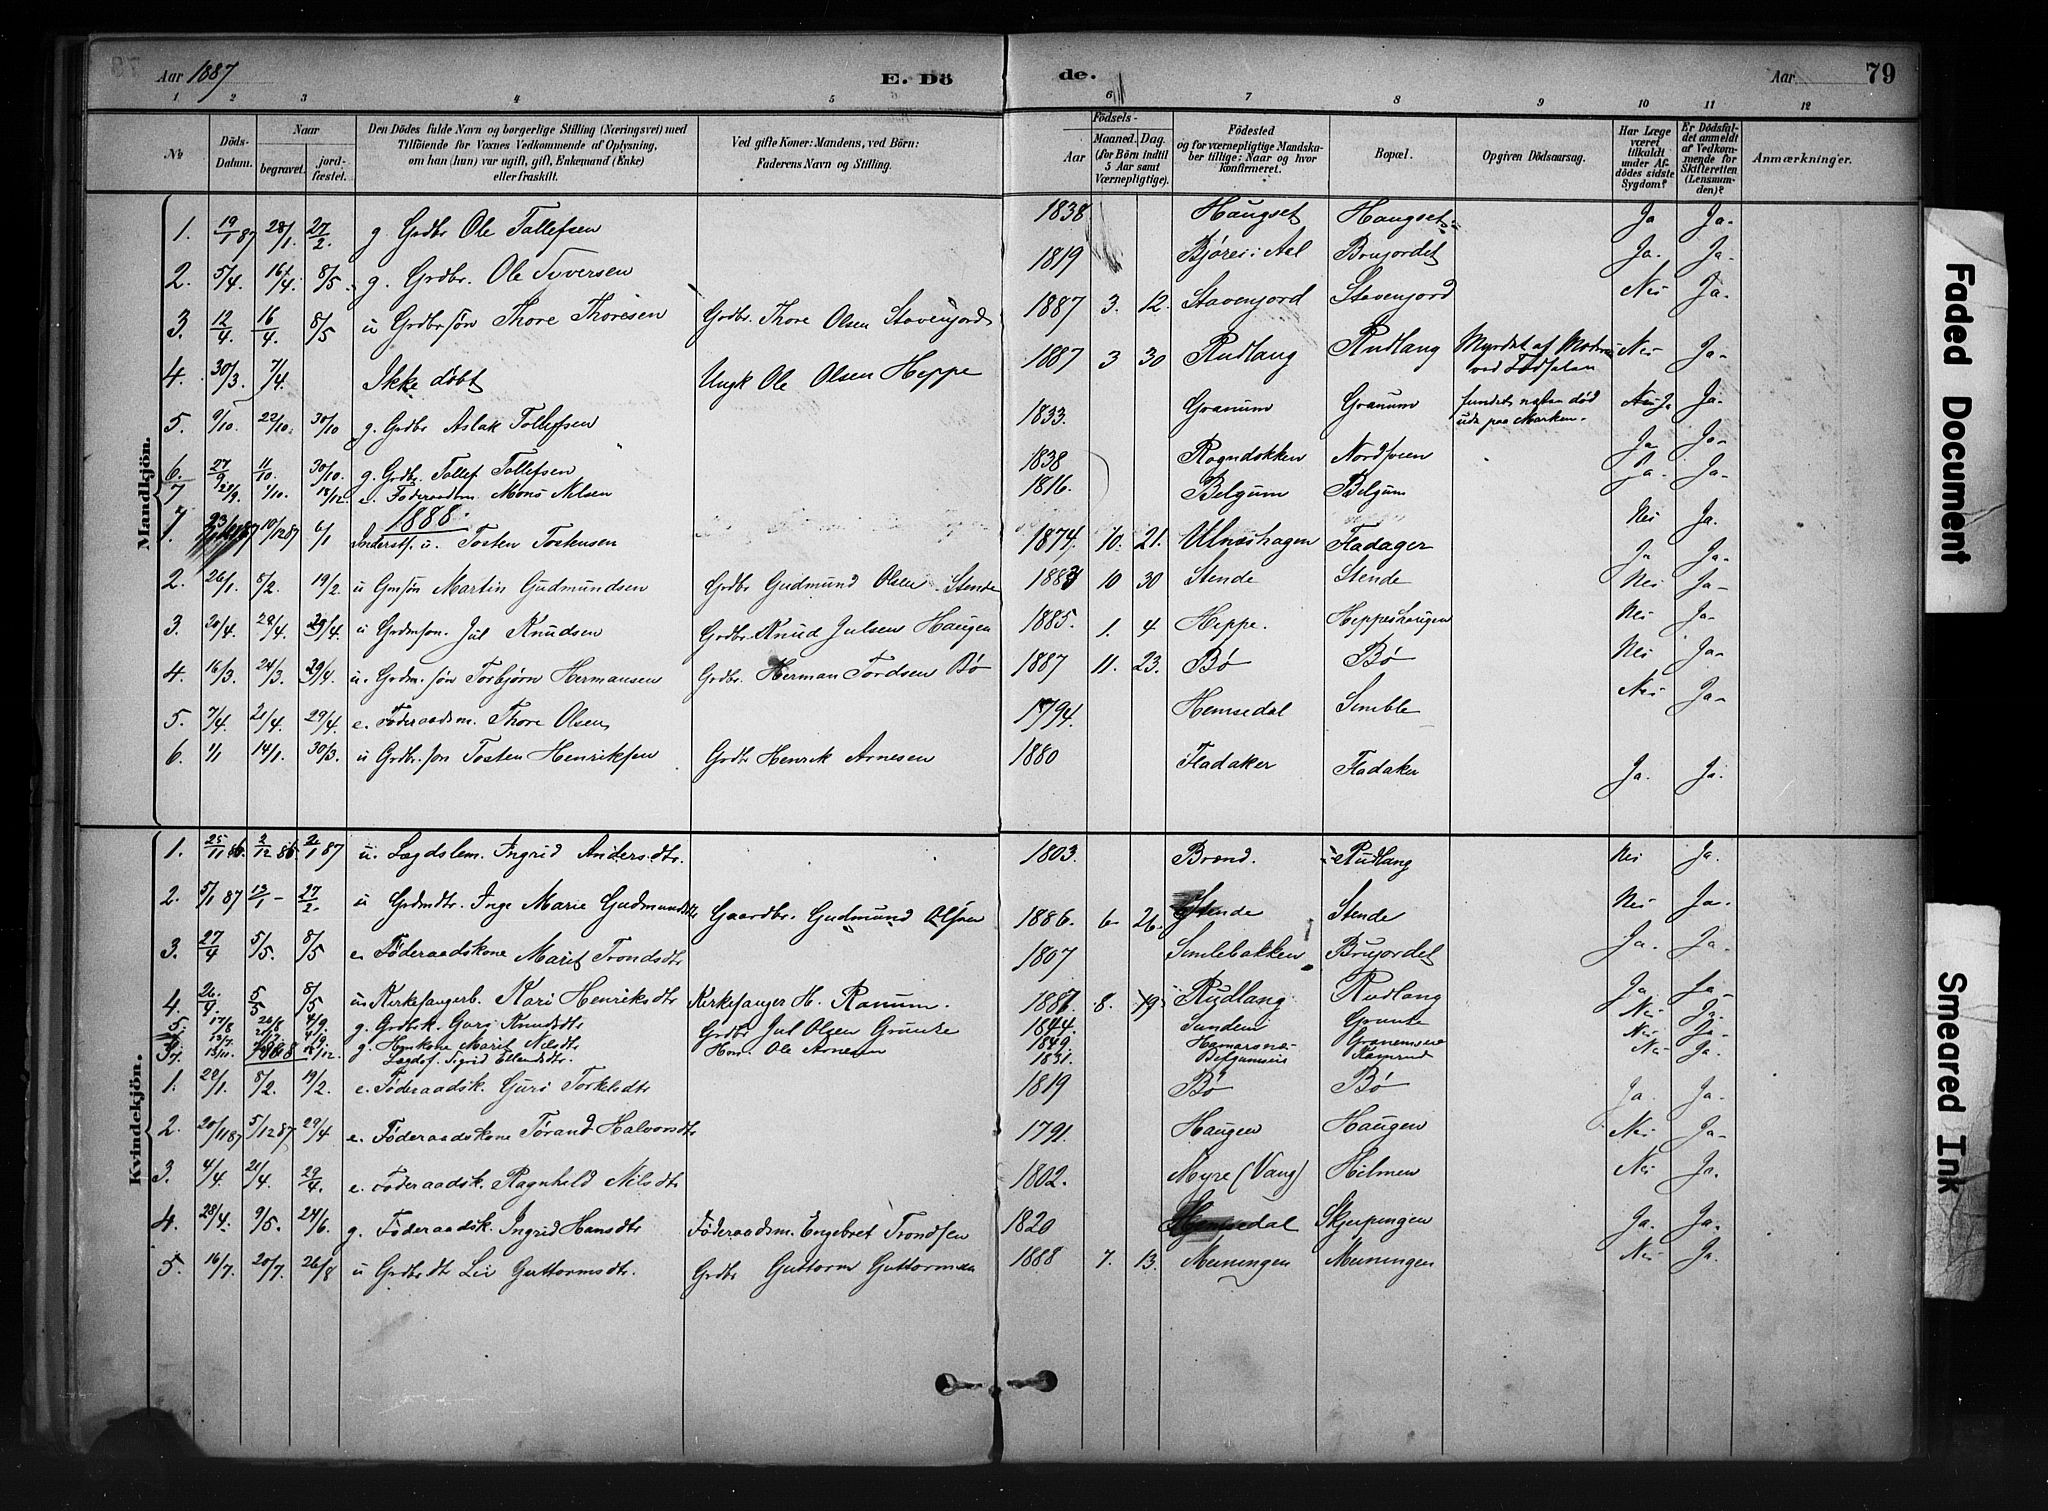 Aar 1887 E. Dö de. Aar 79
1 2 3 4 5 6 7 8 9 10 11 12
No Döds-Datum. Naar begravet. jord-fæstet. Den Dödes fulde Navn og borgerlige Stilling (Næringsvei) med Tilföiende for Voxnes Vedkommende af Oplysning, om han (hun) var ugift, gift, Enkemand (Enke) eller fraskilt. Ved gifte Koner: Mandens, ved Börn: Faderens Navn og Stilling. Födsels- Aar Maaned. Dag. (for Börn indtil 5 Aar samt Værnepligtige). Födested og for værnepligtige Mandskaber tillige: Naar og hvor konfirmeret. Bopæl. Opgiven Dödsaarsag. Har Læge været tilkaldt under Afdödes sidste Sygdom? Er Dödsfaldet anmeldt af Vedkommende for Skifteretten (Lensmanden)? Anmærkninger.
Mandkjön.
1. 19/1 87 28/1 27/2 g. Grdbr Ole Tollefsen 1838 Haugset Haugset Ja Ja-
2. 5/4 16/4. 8/5 g. Grdbr. Ole Syversen 1819 Bjørei i Aal Brujordet Ja. Ja-
3. 12/4 16/4 8/5 u Grdbrsøn Thore Thoresen Grdbr. Thore Olsen Stavenjord 1887 3. 12. Stavenjord Stavenjord Nei Ja-
4. 30/3 7/4 Ikke døbt Ungk Ole Olsen Heppe 1887 3 30 Rudlang Rudlang Myrdet af Moderen ved Fødselen Nei Ja-
5. 9/10. 22/10. 30/10 g. Grdbr Aslak Tollefsen 1833. Granum Granum fundet næsten død ude paa Marken. Ja Ja-
6. 27/9 11/10 30/10. g. Grdbr. Tollef Tollefsen 1838 Rogndokken Nordsveen Ja Ja-
7 1/10. 18/12. e. Føderaadsm. Mons Nilsen 1816. Belgum Belgum Ja- Ja-
1888.
1. 10/12 87 6/1 u. Tosten Tostensen 1874. 10. 21. Ulnæshagen Fladager Nei Ja.
2. 26/1. 8/2. 19/2 u Martin Gudmundsen Grdbr Gudmund Olsen Stende 1883 10 30 Stende Stende Ja Ja-
3. 20/4. 28/4. 29/4. u Jul Knudsen Grdbr. Knud Julsen Haugen 1885. 1. 4 Heppe. Heppeshaugen Nei Ja-
4. 16/3. 24/3. 29/4. u. Grdm.søn Torbjørn Hermansen Grdbr. Herman Tordsen Bø 1887 11. 23. Bø Bø Nei Ja-
5. 7/4. 21/4. 29/4. e. Føderaadsm. Thore Olsen 1794. Hemsedal Semble Nei Ja-
6. 1/1 14/1. 30/3. u Grdbr.søn Tosten Henriksen Grdbr Henrik Arnesen 1880 Fladaker Fladaker Ja. Ja.
Kvindekjön.
1. 25/11 86. 2/12 86. 2/1 87 u. Lægdslem. Ingrid Andersdtr. 1803. Brænd. Rudlang Nei Ja.
2. 5/1 87 13/1 - 27/2. u Grdmdtr. Inge Marie Gudmundsdtr Gaardbr. Gudmund Olsen 1886. 6- 26. Stende Stende Nei Ja-
3. 27/4 5/5. 8/5 e Føderaadskone Marit Trondsdtr 1807 Semlebakken Brujordet Ja. Ja.
4. 26/4. 5/5 8/5 u Kirkesangerb. Kari Henriksdtr Kirkesanger H. Ranum. 1886 8. 19. Rudlang Rudlang Ja Ja-
5. 17/8 20/8 4/9 g. Grdbsk. Guri Knudsdtr Grdbr Jul Olsen Grunke 1844. Sundem Grunke Nei Ja.
13/7. g. Hmkone Marit Nilsdtr Hm. Ole Arnesen 1849. Granemoen Nei Ja-
7. 13/11. 18/12. Lægdsf. Sigrid Ellendsdtr. 1831. Nei Ja.
1888
1. 22/1 8/2. 19/2. e. Føderaadsk. Guri Torkelsdtr 1819 Bø Bø Ja. Ja.
2. 20/11 87 5/12 87. 29/4 e. Føderaadskone Tørand Halvorsdtr 1791. Haugen Haugen Nei Ja-
3. 4/4. 21/4. 29/4. e. Føderaadsk. Ragnhild Nilsdtr 1802. Myre (Vang) Hilmen Nei Ja.
4. 28/4. 9/5. 24/6. g. Føderaadsk. Ingrid Hansdtr Føderaadsm. Engebret Trondsen 1820 Hemsedal Skjerpingen Ja. Ja-
5. 16/7. 20/7. 26/8 u Grdbrdtr Liv Guttormsdtr. Grdbr Guttorm Guttormsen 1888 7. 13. Meiningen Meiningen Nei Ja.
Faded Document
Smeared Ink